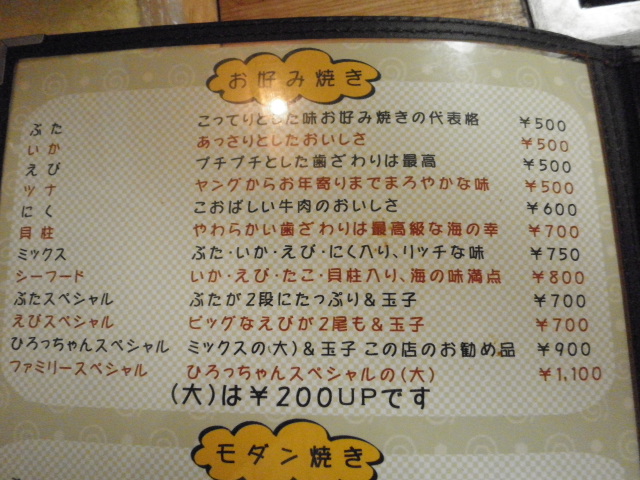 お好み焼き
ぶた こってりとした味お好み焼きの代表格 ¥500
いか あっさりとしたおいしさ ¥500
えび プチプチとした歯ざわりは最高 ¥500
ツナ ヤングからお年寄りまでまろやかな味 ¥500
にく こおばしい牛肉のおいしさ ¥600
貝柱 やわらかい歯ざわりは最高級な海の幸 ¥700
ミックス ぶた・いか・えび・にく入り、リッチな味 ¥750
シーフード いか・えび・たこ・貝柱入り、海の味満点 ¥800
ぶたスペシャル ぶたが2段にたっぷり&玉子 ¥700
えびスペシャル ビッグなえびが2尾も&玉子 ¥700
ひろっちゃんスペシャル ミックスの(大)&玉子 この店のお勧め品 ¥900
ファミリースペシャル ひろっちゃんスペシャルの(大) ¥1,100
(大)は¥200UPです
モダン焼き